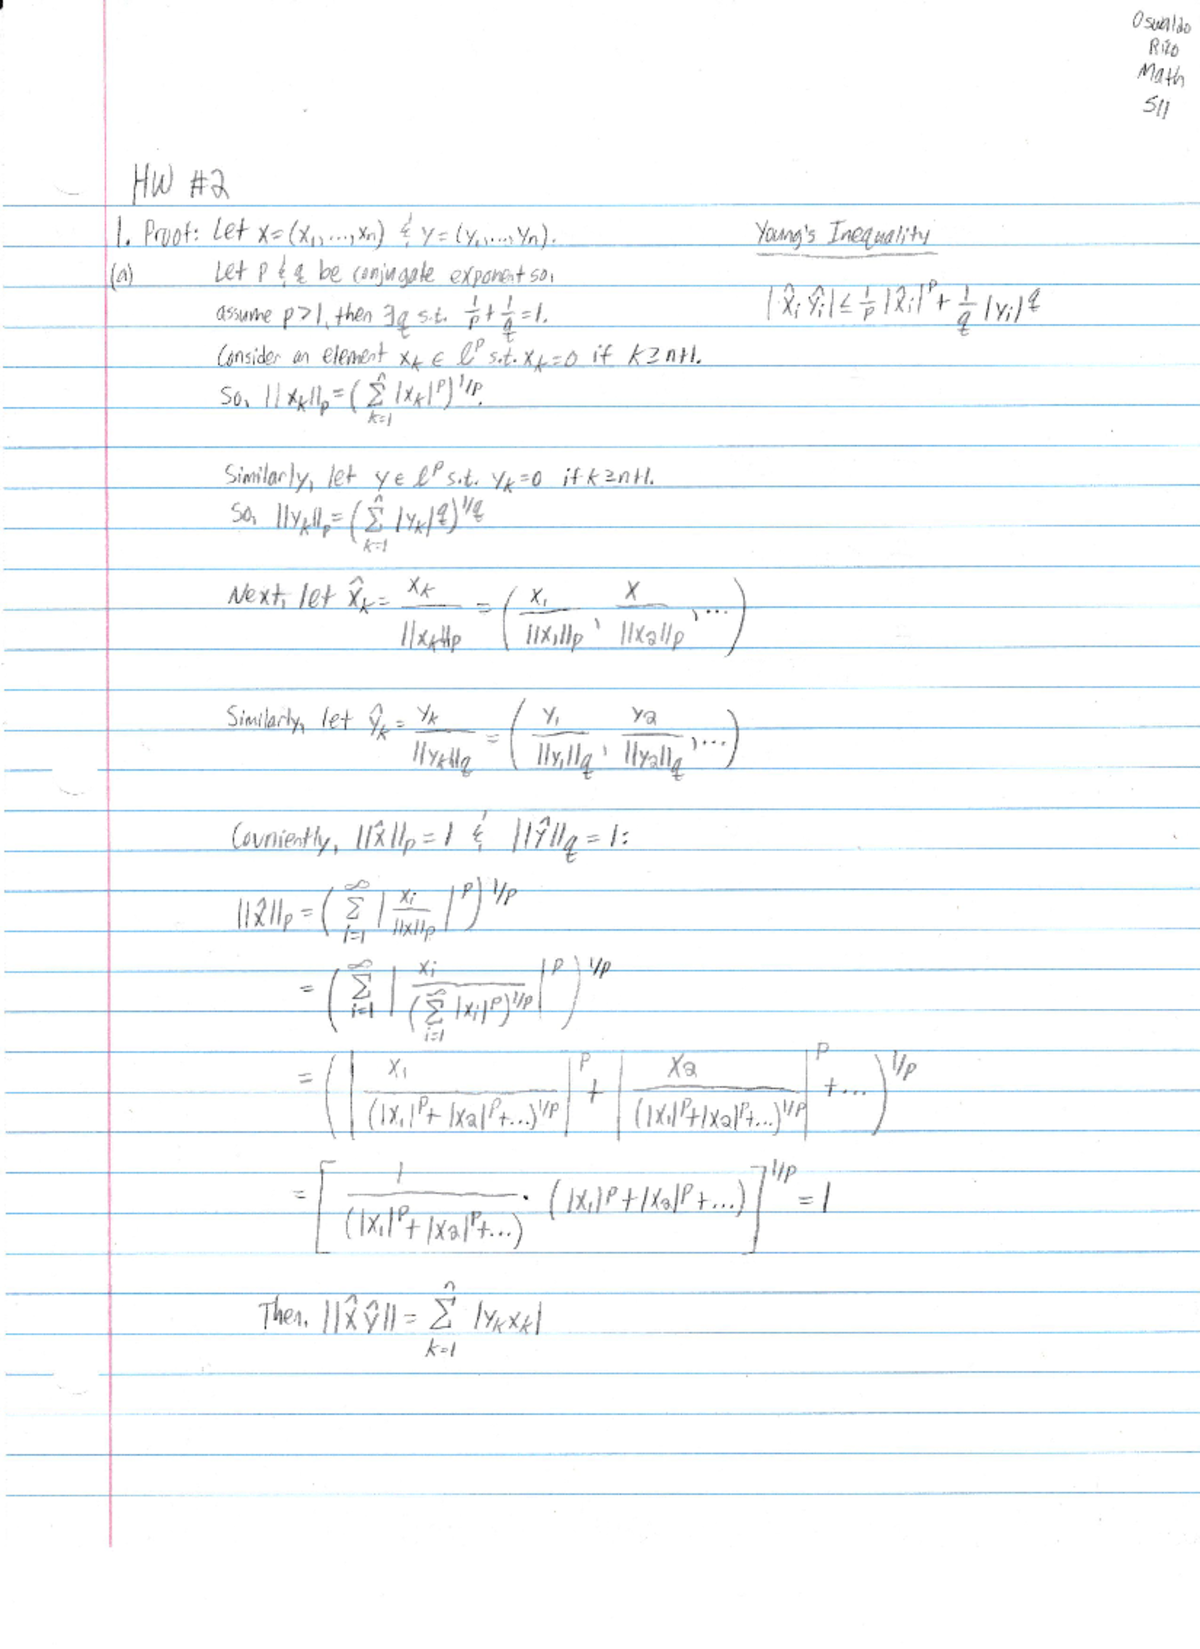 Oswaldo
Rizo
Math
511
HW #2
1. Proof: Let x=(x₁,...,xn) & y=(y₁,...,yn).
Young's Inequality
(a) Let p & q be conjugate exponent so,
assume p>1, then ∃q s.t. 1/p + 1/q = 1.
|x̂ᵢ ŷᵢ| ≤ 1/p |x̂ᵢ|^p + 1/q |yᵢ|^q
Consider an element x_k ∈ l^p s.t. x_k=0 if k≥n+1.
So, ||x_k||_p = (Σ_{k=1}^n |x_k|^p)^{1/p}.
Similarly, let y ∈ l^p s.t. y_k=0 if k≥n+1.
So, ||y_k||_p = (Σ_{k=1}^n |y_k|^q)^{1/q}
Next, let x̂_k = x_k/||x_k||_p = (x₁/||x₁||_p, x/||x₂||_p, ...)
Similarly, let ŷ_k = y_k/||y_k||_q = (y₁/||y₁||_q, y₂/||y₂||_q, ...)
Covniently, ||x̂||_p = 1 & ||ŷ||_q = 1:
||x̂||_p = (Σ_{i=1}^∞ |xᵢ/||x||_p|^p)^{1/p}
= (Σ_{i=1}^∞ |xᵢ/(Σ_{i=1}^∞ |xᵢ|^p)^{1/p}|^p)^{1/p}
= (|x₁/(|x₁|^p+|x₂|^p+...)^{1/p}|^p + |x₂/(|x₁|^p+|x₂|^p+...)^{1/p}|^p + ...)^{1/p}
= [1/(|x₁|^p+|x₂|^p+...) · (|x₁|^p+|x₂|^p+...)]^{1/p} = 1
Then, ||x̂ŷ|| = Σ_{k=1}^n |y_k x_k|